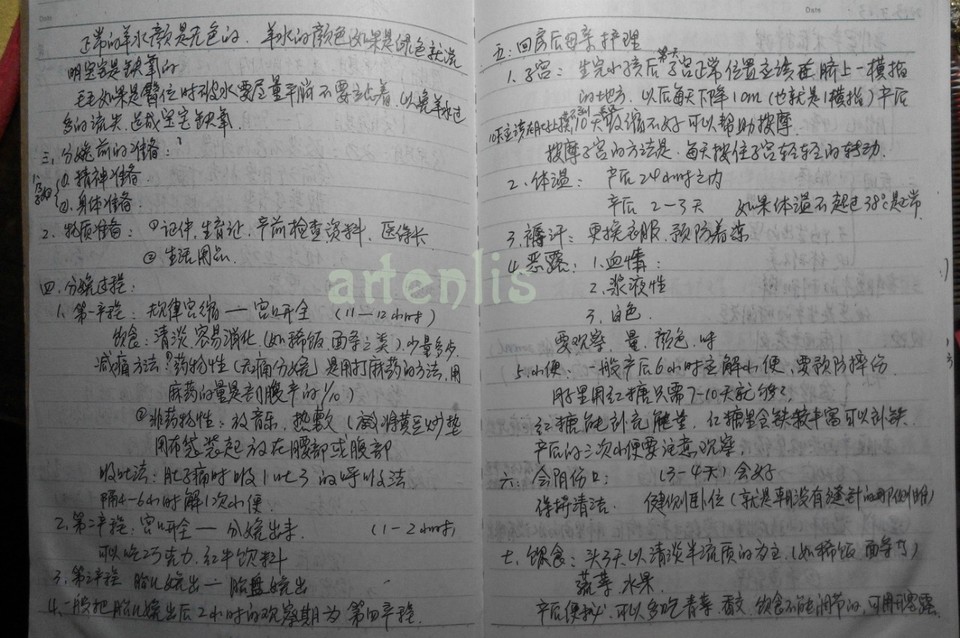 正常的羊水颜是无色的. 羊水的颜色如果是绿色就说
明宝宝是缺氧的
毛毛如果是臀位时破水要尽量平躺不要立起着. 以免羊水过
多的流失. 造成宝宝缺氧.
三. 分娩前的准备:
1. ①. 精神准备.
②. 身体准备.
2. 物质准备: ①证件. 生育证. 产前检查资料. 医保卡
② 生活用品.
四. 分娩过程:
1. 第一产程: 规律宫缩 — 宫口开全 (11-12小时)
饮食: 清淡. 容易消化. (如稀饭 面条之类). 少量多点.
减痛方法: ①药物性 (无痛分娩) 是用打麻药的方法, 用
麻药的量是剖腹产的1/10)
②非药物性: 放音乐. 热敷 ( 将黄豆炒热
用布袋装起放在腰部或腹部
吸吐法: 肚子痛时吸1吐3的呼吸法
隔4-6小时解1次小便.
2. 第二产程. 宫口开全 — 分娩出来. (1-2小时)
可以吃巧克力. 红牛饮料
3. 第三产程 胎儿娩出 — 胎盘娩出
4. 一般把胎儿娩出后2小时的观察期为第四产程.
五: 回房后母亲护理
1. 子宫: 生完小孩后第一天子宫正常位置应该在脐上一横指
的地方. 以后每天下降1cm (也就是1横指) 产后
10天 收缩不好可以帮助按摩.
按摩子宫的方法是. 每天按住子宫轻轻的转动.
2. 体温: 产后24小时之内
产后2-3天 如果体温不超过38℃是正常.
3. 褥汗: 更换衣服. 预防着凉
4. 恶露: 1. 血情:
2. 浆液性
3. 白色.
要观察. 量. 颜色. 味
5. 小便: 一般产后6小时应解小便. 要预防摔伤.
月子里用红糖只需7-10天就够了.
红糖能补充能量. 红糖里含铁较丰富可以补铁.
产后的三次小便要注意观察.
六: 会阴伤口: (3-4天) 会好
保持清洁. 健侧卧位 (就是朝没有缝针的那侧睡)
七. 饮食: 头3天以清淡半流质的为主 (如稀饭 面条等)
蔬菜 水果
产后便秘. 可以多吃青菜 香交 饮食不能调节的, 可用开塞露.
artenlis